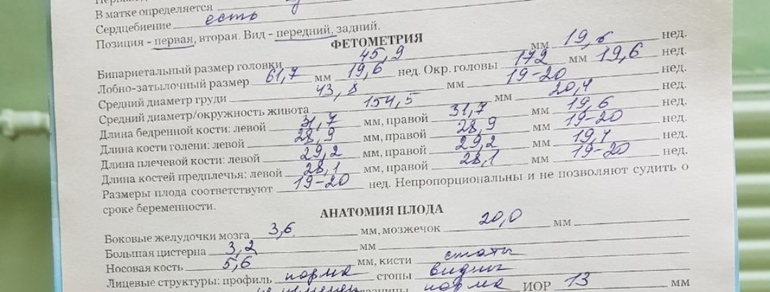 В матке определяется
Сердцебиение есть
Позиция - первая, вторая. Вид - передний, задний.
ФЕТОМЕТРИЯ
Бипариетальный размер головки 45,9 мм 19,6 нед.
Лобно-затылочный размер 61,7 мм 19,6 нед. Окр. головы 172 мм 19,6 нед.
Средний диаметр груди 43,8 мм 19-20 нед.
Средний диаметр/окружность живота 154,5 мм 20,4 нед.
Длина бедренной кости: левой 31,7 мм, правой 31,7 мм 19,6 нед.
Длина кости голени: левой 28,9 мм, правой 28,9 мм 19-20 нед.
Длина плечевой кости: левой 29,2 мм, правой 29,2 мм 19,4 нед.
Длина костей предплечья: левой 28,1 мм, правой 28,1 мм 19-20 нед.
Размеры плода соответствуют 19-20 нед. Непропорциональны и не позволяют судить о
сроке беременности.
АНАТОМИЯ ПЛОДА
Боковые желудочки мозга 3,6 мм, мозжечок 20,0 мм
Большая цистерна 3,2 мм
Носовая кость 5,6 мм, кисти
Лицевые структуры: профиль норма стопы видны
норма ИОР 13 мм